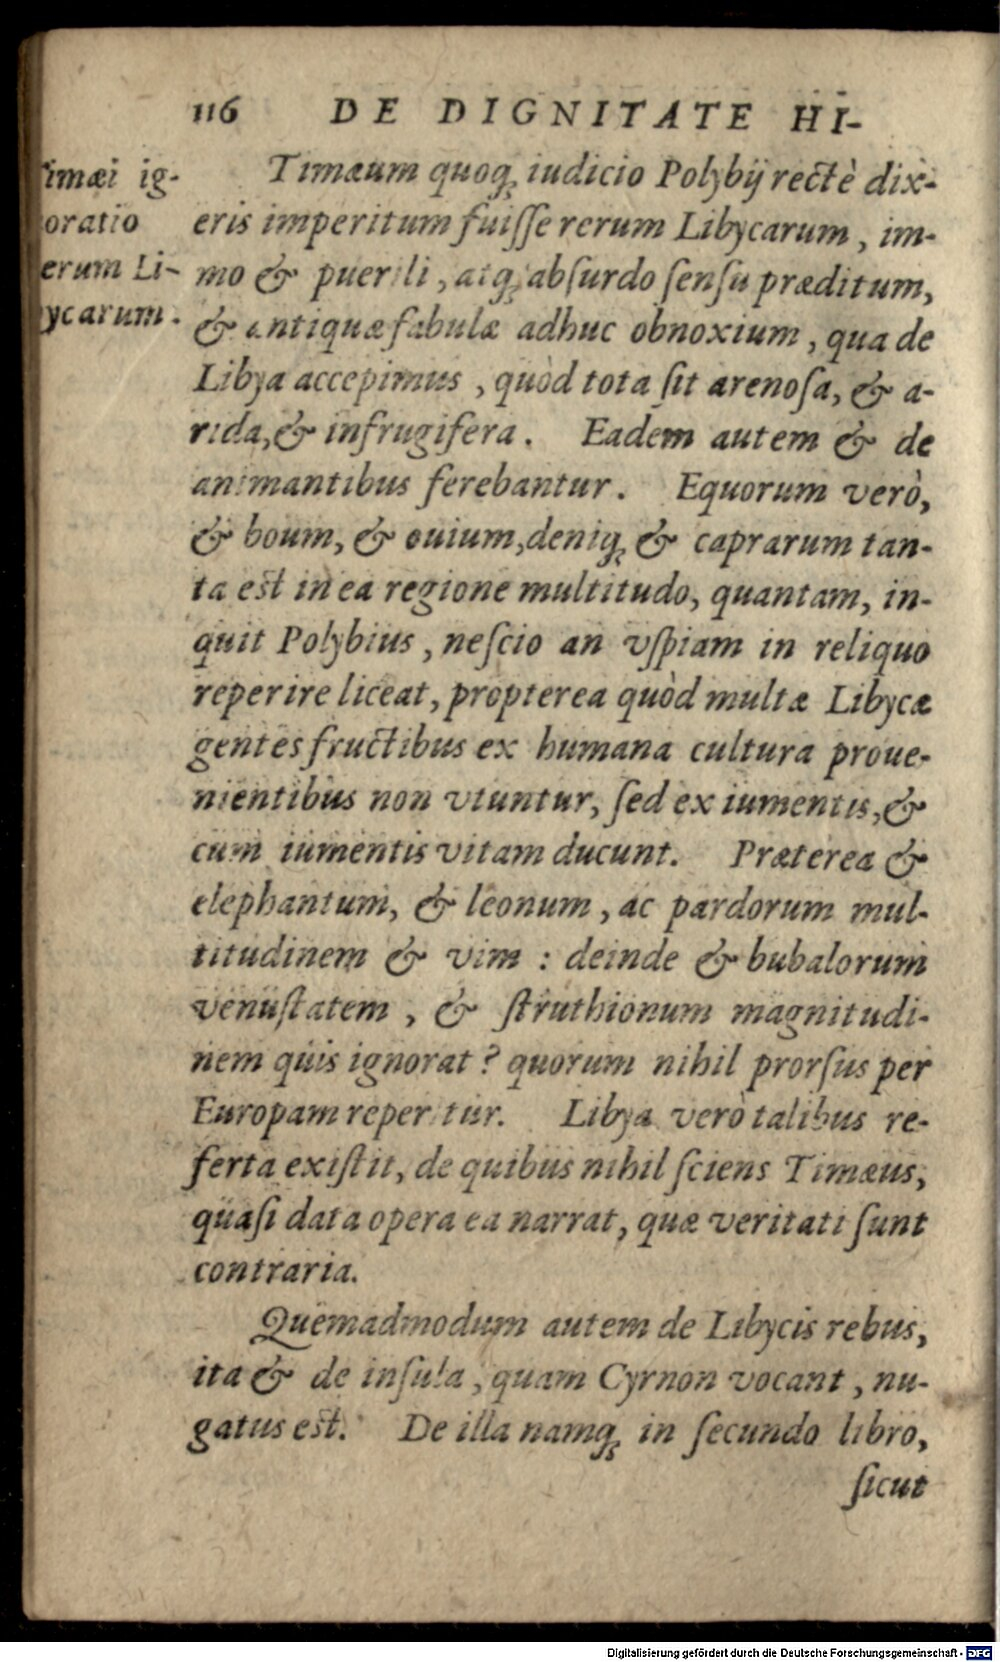 116 DE DIGNITATE HI-
imæi ig-
oratio
erum Li-
ycarum.
Timæum quoq; iudicio Polybij rectè dix-
eris imperitum fuiſſe rerum Libycarum, im-
mo & puerili, atq; abſurdo ſenſu præditum,
& antiquæ fabulæ adhuc obnoxium, qua de
Libya accepimus, quòd tota ſit arenoſa, & a-
rida, & infrugifera. Eadem autem & de
animantibus ferebantur. Equorum verò,
& boum, & ouium, deniq; & caprarum tan-
ta est in ea regione multitudo, quantam, in-
quit Polybius, neſcio an vſpiam in reliquo
reperire liceat, propterea quòd multæ Libycæ
gentes fructibus ex humana cultura proue-
nientibus non vtuntur, ſed ex iumentis, &
cum iumentis vitam ducunt. Præterea &
elephantum, & leonum, ac pardorum mul-
titudinem & vim : deinde & bubalorum
venuſtatem, & ſtruthionum magnitudi-
nem quis ignorat? quorum nihil prorſus per
Europam reperitur. Libya verò talibus re-
ferta exiſtit, de quibus nihil ſciens Timæus,
quaſi data opera ea narrat, quæ veritati ſunt
contraria.
Quemadmodum autem de Libycis rebus,
ita & de inſula, quam Cyrnon vocant, nu-
gatus est. De illa namq; in ſecundo libro,
ſicut
Digitalisierung gefördert durch die Deutsche Forschungsgemeinschaft - DFG